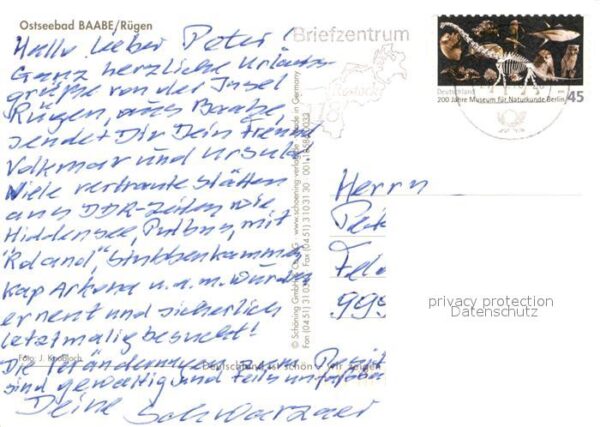 Ostseebad BAABE/Rügen
Hallo lieber Peter!
Ganz herzliche Urlaubs-
grüße von der Insel
Rügen, aus Baabe,
sendet Dir Dein Freund
Volkmar und Ursula
Viele vertraute Stätten
aus DDR-Zeiten wie
Hiddensee, Putbus, mit
"Roland", Stubbenkammer
Kap Arkona u.a.m. wurden
erneut und sicherlich
letztmalig besucht!
Die Veränderungen zum Positi
sind gewaltig und teils
Deine Schwarzaer
Foto: J. Knobloch
Deutschland ist schön - wir zeigen
© Schöning GmbH & Co. KG www.schoening-verlag.de made in Germany
Fax (0451) 310 31 30
Briefzentrum
18
Deutschland
200 Jahre Museum für Naturkunde Berlin
45
Herrn
Pet
Fel
999
privacy protection
Datenschutz